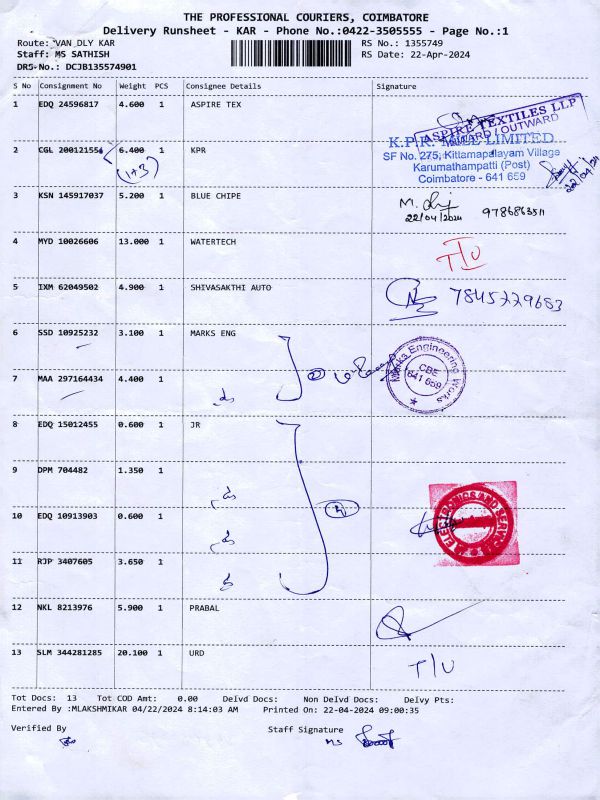 THE PROFESSIONAL COURIERS, COIMBATORE
Delivery Runsheet - KAR - Phone No.:0422-3505555 - Page No.:1
Route: VAN DLY KAR RS No.: 1355749
Staff: MS SATHISH RS Date: 22-Apr-2024
DRS-No.: DCJB135574901
S No Consignment No Weight PCS Consignee Details Signature
1 EDQ 24596817 4.600 1 ASPIRE TEX
ASPIRE TEXTILES LLP
INWARD / OUTWARD
2 CGL 200121554 6.400 1 KPR
(1+3)
K.P.R. MILL LIMITED
SF No. 275, Kittampalayam Village
Karumathampatti (Post)
Coimbatore - 641 659
22/04/24
3 KSN 145917037 5.200 1 BLUE CHIPE
22/04/2024 9786863511
4 MYD 10026606 13.000 1 WATERTECH
T/U
5 IXM 62049502 4.900 1 SHIVASAKTHI AUTO
7845229683
6 SSD 10925232 3.100 1 MARKS ENG
Engineering Works
CBE
641 659
7 MAA 297164434 4.400 1
8 EDQ 15012455 0.600 1 JR
9 DPM 704482 1.350 1
10 EDQ 10913903 0.600 1
ELECTRONICS AND SERVICE
11 RJP 3407605 3.650 1
12 NKL 8213976 5.900 1 PRABAL
13 SLM 344281285 20.100 1 URD
T/U
Tot Docs: 13 Tot COD Amt: 0.00 Delvd Docs: Non Delvd Docs: Delvy Pts:
Entered By :MLAKSHMIKAR 04/22/2024 8:14:03 AM Printed On: 22-04-2024 09:00:35
Verified By Staff Signature
MS